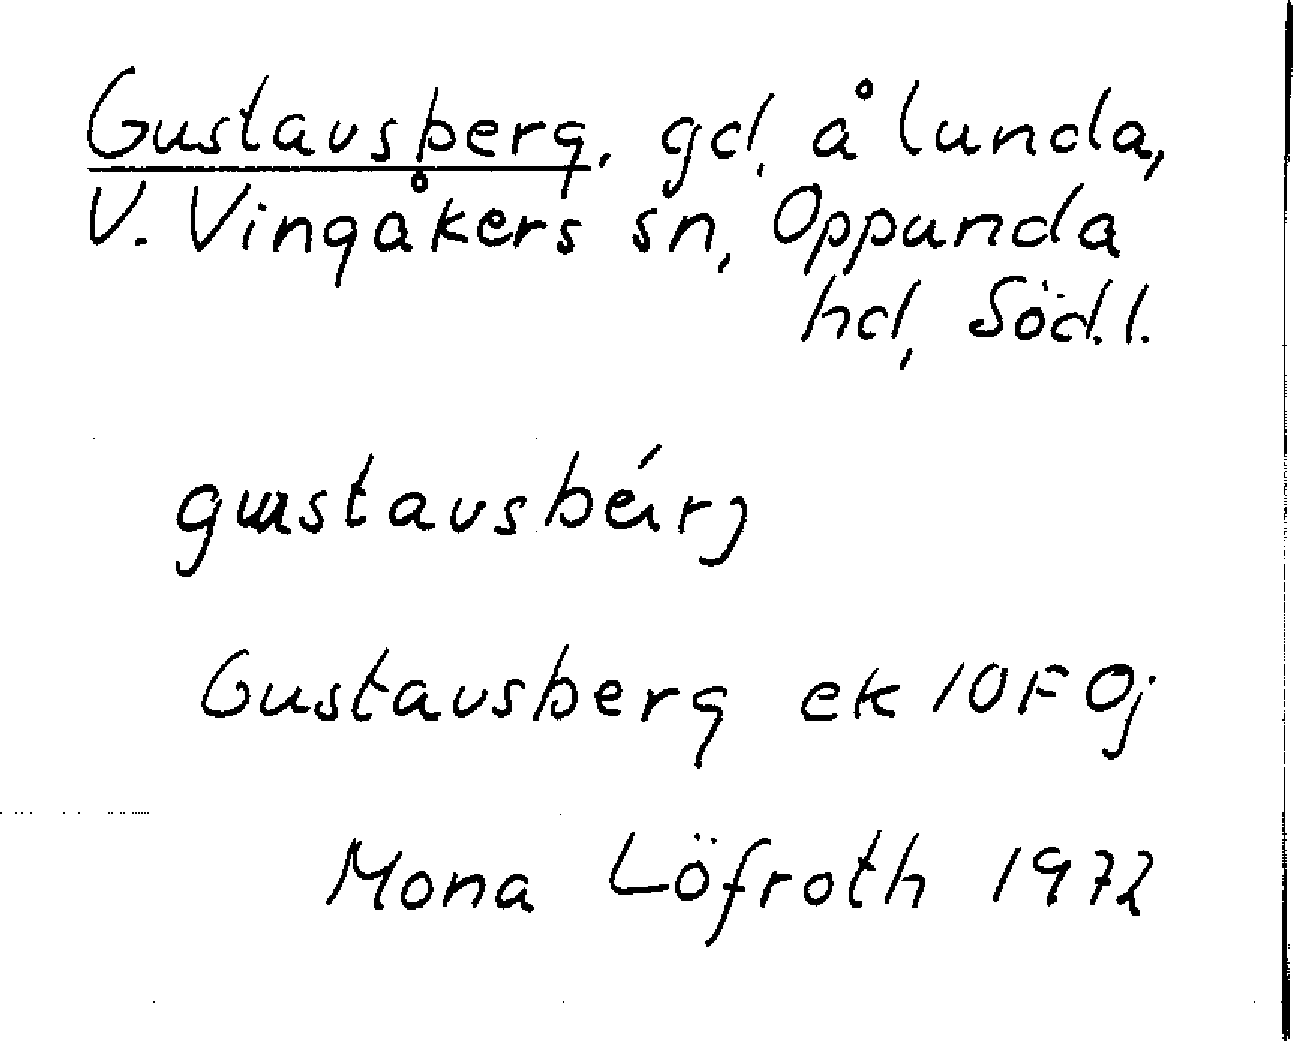 Gustavsberg, gd, å lunda,
V. Vingåkers sn, Oppunda
hd, Söd.l.
gustavsbárj
Gustavsberg ek 10F 0j
Mona Löfroth 1972